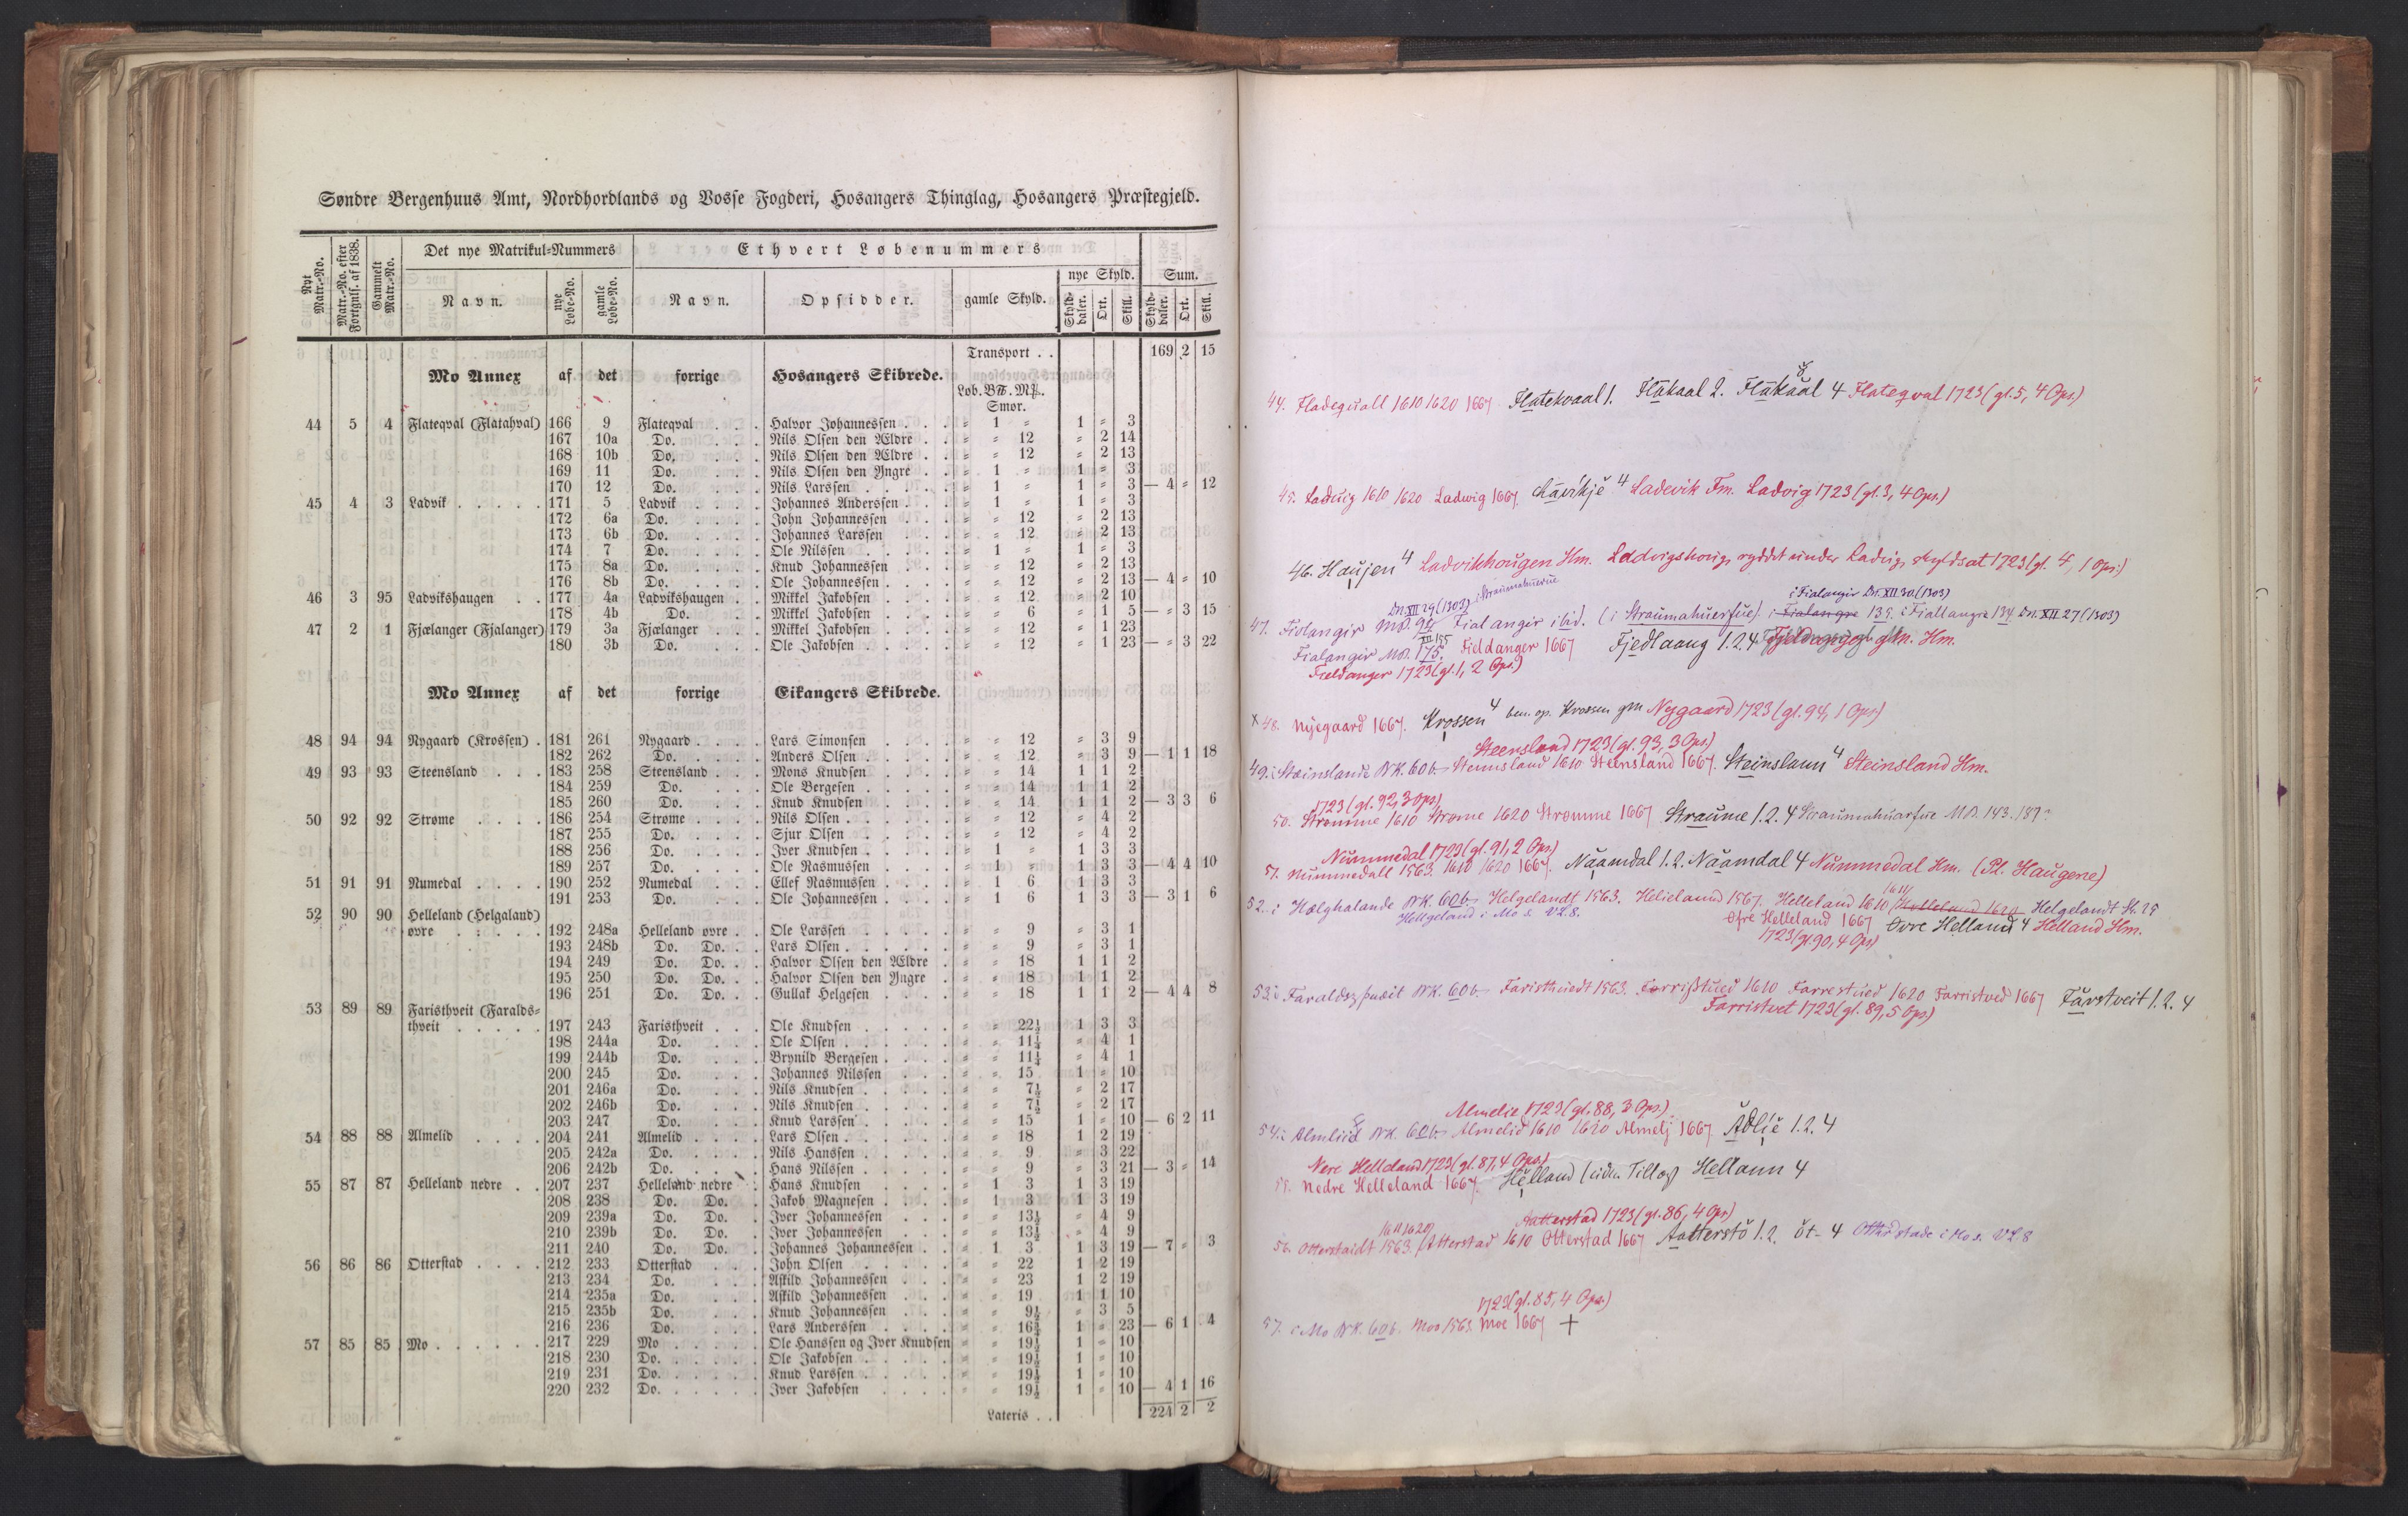 Søndre Bergenhuus Amt, Nordhordlands og Vosse Fogderi, Hosangers Thinglag, Hosangers Præstegjeld.
Nyt Matr.-No. Matr.-No. efter Fortgnis. af 1838. Gammelt Matr.-No. Det nye Matrikul-Nummers Ethvert Løbenummers
Navn. nye Løbe-No. gamle Løbe-No. Navn. Opsidder. gamle Skyld. nye Skyld. Sum.
Skyld-daler. Ort. Skill. Skyld-daler. Ort. Skill.
Transport . . 169 2 15
Mo Annex af det forrige Hosangers Skibrede.
Løb. B℔. M℔. Smør.
44 5 4 Flateqval (Flatahval) 166 9 Flateqval . . . Halvor Johannessen . . . = 1 = 1 = 3
167 10a Do. . . . Nils Olsen den Ældre . . = = 12 = 2 14
168 10b Do. . . . Nils Olsen den Ældre . . = = 12 = 2 13
169 11 Do. . . . Nils Olsen den Yngre . . = 1 = 1 = 3
170 12 Do. . . . Nils Larssen . . . . . = 1 = 1 = 3 — 4 = 12
45 4 3 Ladvik . . . . . 171 5 Ladvik . . . . Johannes Anderssen . . . = 1 = 1 = 3
172 6a Do. . . . . John Johannessen . . . = = 12 = 2 13
173 6b Do. . . . . Johannes Larssen . . . = = 12 = 2 13
174 7 Do. . . . . Ole Nilssen . . . . . = 1 = 1 = 3
175 8a Do. . . . . Knud Johannessen . . . = = 12 = 2 13
176 8b Do. . . . . Ole Johannessen . . . . = = 12 = 2 13 — 4 = 10
46 3 95 Ladvikshaugen . . 177 4a Ladvikshaugen . . Mikkel Jakobsen . . . . = = 12 = 2 10
178 4b Do. . . Mikkel Jakobsen . . . . = = 6 = 1 5 — = 3 15
47 2 1 Fjælanger (Fjalanger) 179 3a Fjælanger . . . Mikkel Jakobsen . . . . = = 12 = 1 23
180 3b Do. . . . Ole Jakobsen . . . . . = = 12 = 1 23 — = 3 22
Mo Annex af det forrige Eikangers Skibrede.
48 94 94 Nygaard (Krossen) . 181 261 Nygaard . . . . Lars Simonsen . . . . = = 12 = 3 9
182 262 Do. . . . . Anders Olsen . . . . . = = 12 = 3 9 — 1 1 18
49 93 93 Steensland . . . 183 258 Steensland . . . Mons Knudsen . . . . = = 14 1 1 2
184 259 Do. . . . Ole Bergesen . . . . . = = 14 1 1 2
185 260 Do. . . . Knud Knudsen . . . . = = 14 1 1 2 — 3 3 6
50 92 92 Strøme . . . . 186 254 Strøme . . . . Nils Olsen . . . . . . = = 12 = 4 2
187 255 Do. . . . . Sjur Olsen . . . . . = = 12 = 4 2
188 256 Do. . . . . Iver Knudsen . . . . . = 1 = 1 3 3
189 257 Do. . . . . Ole Rasmussen . . . . = 1 = 1 3 3 — 4 4 10
51 91 91 Numedal . . . . 190 252 Numedal . . . Ellef Rasmussen . . . . = 1 6 1 3 3
191 253 Do. . . . Ole Johannessen . . . . = 1 6 1 3 3 — 3 1 6
52 90 90 Helleland (Helgaland)
øvre . . . . . 192 248a Helleland øvre . . Ole Larssen . . . . . = = 9 = 3 1
193 248b Do. Do. . . Lars Olsen . . . . . . = = 9 = 3 1
194 249 Do. Do. . . Halvor Olsen den Ældre . = = 18 1 1 2
195 250 Do. Do. . . Halvor Olsen den Yngre . = = 18 1 1 2
196 251 Do. Do. . . Gullak Helgesen . . . . = = 18 1 1 2 — 4 4 8
53 89 89 Faristhveit (Faralds-
thveit . . . . . 197 243 Faristhveit . . . Ole Knudsen . . . . . = = 22½ 1 3 3
198 244a Do. . . . Ole Olsen . . . . . . = = 11¼ = 4 1
199 244b Do. . . . Brynild Bergesen . . . . = = 11¼ = 4 1
200 245 Do. . . . Johannes Nilssen . . . = = 15 1 = 10
201 246a Do. . . . Nils Knudsen . . . . . = = 7½ = 2 17
202 246b Do. . . . Nils Knudsen . . . . . = = 7½ = 2 17
203 247 Do. . . . Knud Larssen . . . . . = = 15 1 = 10 — 6 2 11
54 88 88 Almelid . . . . 204 241 Almelid . . . . Lars Olsen . . . . . . = = 18 1 2 19
205 242a Do. . . . . Nils Hanssen . . . . . = = 9 = 3 22
206 242b Do. . . . . Hans Nilsen . . . . . = = 9 = 3 21 — 3 = 14
55 87 87 Helleland nedre . . 207 237 Helleland nedre . Hans Knudsen . . . . = 1 3 1 3 19
208 238 Do. Do. . Jakob Magnesen . . . . = 1 3 1 3 19
209 239a Do. Do. . Iver Johannessen . . . = = 13½ = 4 9
210 239b Do. Do. . Iver Johannessen . . . = = 13½ = 4 9
211 240 Do. Do. . Johannes Johannessen . . = 1 3 1 3 19 — 7 = 3
56 86 86 Otterstad . . . . 212 233 Otterstad . . . John Olsen . . . . . = = 22 1 2 19
213 234 Do. . . . Askild Johannessen . . . = = 23 1 2 19
214 235a Do. . . . Askild Johannessen . . . = = 19 1 1 10
215 235b Do. . . . Knud Johannessen . . . = = 9½ = 3 5
216 236 Do. . . . Lars Anderssen . . . . = = 16¾ 1 = 23 — 6 1 4
57 85 85 Mo . . . . . . 217 229 Mo . . . . . Ole Hanssen og Iver Knudsen = = 19½ 1 = 10
218 230 Do. . . . . . Ole Jakobsen . . . . . = = 19½ 1 = 10
219 231 Do. . . . . . Knud Larssen . . . . . = = 19½ 1 = 10
220 232 Do. . . . . . Iver Jakobsen . . . . = = 19½ 1 = 10 — 4 1 16
Lateris . . 224 2 2
44. Fladequall 1610 1620 1667. Flatekvaal 1. Flakaal 2. Flakaal 4 Flateqval 1723 (gl. 5, 4 Ops.)
45. Ladvig 1610 1620 Ladwig 1667. 4 Ladevik Fm. Ladvig 1723 (gl. 3, 4 Ops.)
46. Haujen 4 Ladvikhougen Hm. Ladvigshoug, ryddet under Ladvig, skyldsat 1723 (gl. 4, 1 Ops.)
Dn. XII 29 (1303) i Straumahuerue i Fialangir Dn. XII 30 (1303)
47. Fiolangir MD. 95 Fialangir ibid. (i Straumahuerfue). i Fialangre 135. i Fiallangre 134 Dn. XII 27 (1303)
Fialangir MD. 175. Fieldanger 1667 Fjedlaang 1.2.4 Hm.
Fieldanger 1723 (gl. 1, 2 Ops.)
x 48. Nyegaard 1667. Krossen 4 ben. op. Krossen gm Nygaard 1723 (gl. 94, 1 Ops)
Steensland 1723 (gl. 93, 3 Ops.)
49. i Stæinslande BK. 60b. Stennsland 1610 Steinsland 1667. Steinslann 4 Steinsland Hm.
1723 (gl. 92, 3 Ops)
50. Strømme 1610 Strøme 1620 Strømme 1667 Straume 1.2.4 Straumahuarfue MD. 143. 189?
Nummedal 1723 (gl. 91, 2 Ops.)
51. Nummedall 1563. 1610 1620 1667. Naamdal 1.2. Naamdal 4 Nummedal Hm. (Pl. Haugene)
52. i Hælghalande BK. 60b. Helgelandt 1563. Helieland 1567. Helleland 1610 Helleland 1620 Helgelandt St. 25
Hellgeland i Mo s. VL. 8. Øfre Helleland 1667 Øvre Helland 4 Helland Hm.
1723 (gl 90, 4 Ops)
53. i Faraldzþuæit BK. 60b. Faristhuedt 1563. Farristued 1610 Farrestued 1620 Farristved 1667 Farstveit 1.2.4
Farristvet 1723 (gl. 89, 5 Ops.)
Almelie 1723 (gl. 88, 3 Ops.)
54. i Almliid BK. 60b. Almelid 1610 1620 Almelj 1667. Adlie 1.2.4
Nere Helleland 1723 (gl. 87, 4 Ops.)
55. Nedre Helleland 1667. Helland (uden Tillæg) Hellann 4
Aatterstad 1723 (gl. 86, 4 Ops)
56. Otterstaidt 1563. Atterstad 1610 Otterstad 1667 Aatterstø 1.2. öt- 4 Ottarstade i Mo s. VL. 8
1723 (gl. 85, 4 Ops.)
57. i Mo BK. 60b. Moo 1563. Moe 1667 +